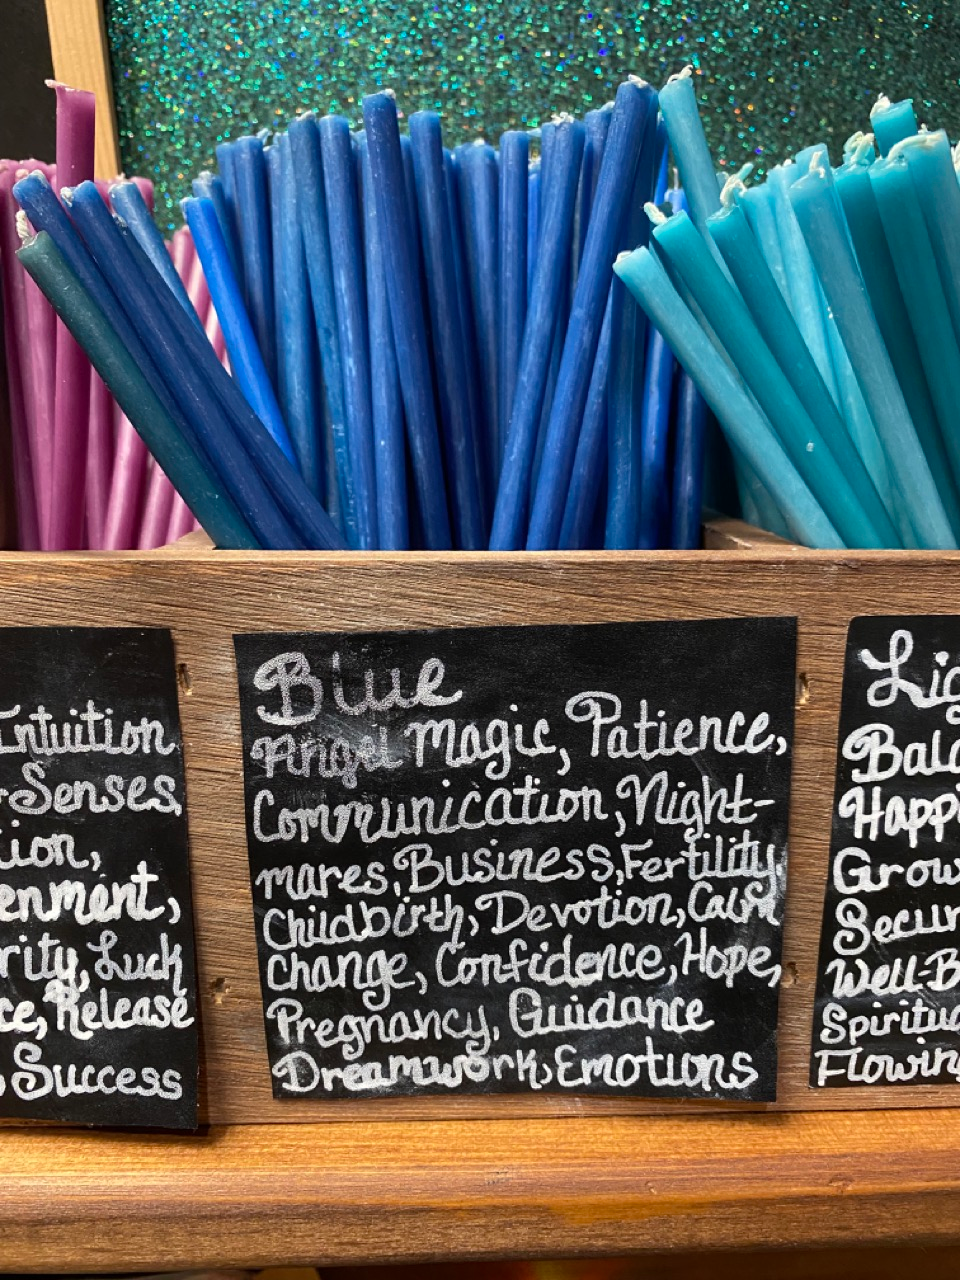 Intuition
Senses,
ion,
enment,
rity, Luck
ce, Release
, Success
Blue
Angel Magic, Patience,
Communication, Night-
mares, Business, Fertility,
Childbirth, Devotion, Calm
Change, Confidence, Hope,
Pregnancy, Guidance
Dreamwork, Emotions
Lig
Bala
Happi
Grow
Secur
Well-B
Spiritua
Flowin